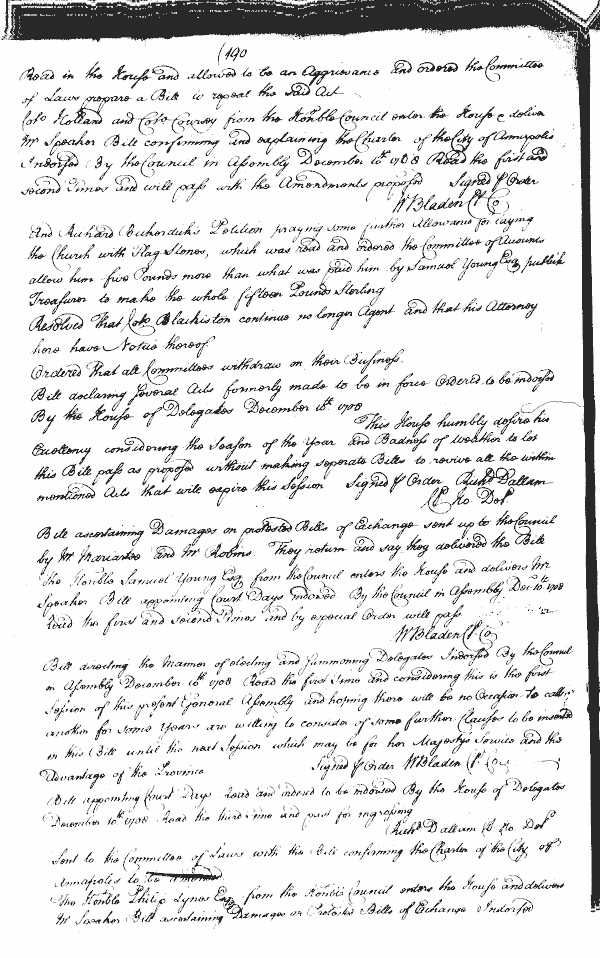 (190
Read in the House and allowed to be an Aggrievance and ordered the Committee
of Laws prepare a Bill to repeal the said Act
Colo Holland and Colo Coursey from the Honble Council enter the House & deliver
Mr Speaker Bill confirming and explaining the Charter of the City of Annapolis
Indorsed By the Council in Assembly December 10th 1708 Read the first and
second Times and will pass with the Amendments proposed Signed p Order
W Bladen Cl Co
And Richard Beckorduk's Petition praying some further Allowance for laying
the Church with Flag Stones, which was read and ordered the Committee of Accounts
allow him five Pounds more than what was paid him by Samuel Young Esq publick
Treasurer to make the whole fifteen Pounds Sterling
Resolved That Colo Blackiston continue no longer Agent and that his Attorney
here have Notice thereof
Ordered that all Committees withdraw on their Business.
Bill declaring several Acts formerly made to be in force Ordered to be indorsed
By the House of Delegates December 10th 1708
This House humbly desire his
Excellency considering the Season of the Year and Badness of Weather to let
this Bill pass as proposed without making seperate Bills to revive all the within
mentioned Acts that will expire this Session Signed p Order Richd Dallam
Cl Ho Del
Bill ascertaining Damages on protested Bills of Exchange sent up to the Council
by Mr Mariartee and Mr Robins. They return and say they delivered the Bill
The Honble Samuel Young Esq from the Council enters the House and delivers Mr
Speaker Bill appointing Court Days indorsed By the Council in Assembly Decr 10th 1708
Read the first and second Times and by especial Order will pass
W Bladen Cl Co
Bill directing the Manner of electing and summoning Delegates Indorsed By the Council
in Assembly December 10th 1708 Read the first Time and considering this is the first
Session of this present General Assembly and hoping there will be no Occasion to call
another for some Years are willing to consider of some further Clauses to be inserted
in this Bill until the next Session which may be for her Majesty's Service and the
Advantage of the Province Signed p Order W Bladen Cl Co
Bill appointing Court Days Read and ordered to be indorsed By the House of Delegates
December 10th 1708 Read the third Time and past for ingrossing
Richd Dallam Cl Ho Del
Sent to the Committee of Laws with the Bill confirming the Charter of the City of
Annapolis to be amended
The Honble Philip Lynes Esq from the Honble Council enters the House and delivers
Mr Speaker Bill ascertaining Damages on Protested Bills of Exchange Indorsed